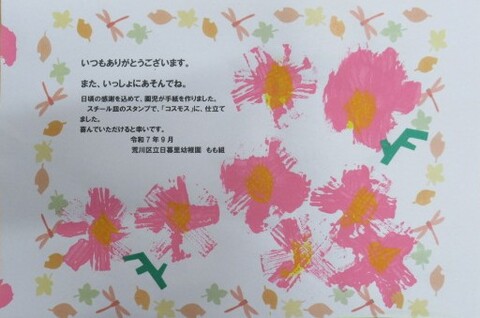 いつもありがとうございます。
また、いっしょにあそんでね。
日頃の感謝を込めて、園児が手紙を作りました。
スチール皿のスタンプで、「コスモス」に、仕立て
ました。
喜んでいただけると幸いです。
令和７年９月
荒川区立日暮里幼稚園　もも組